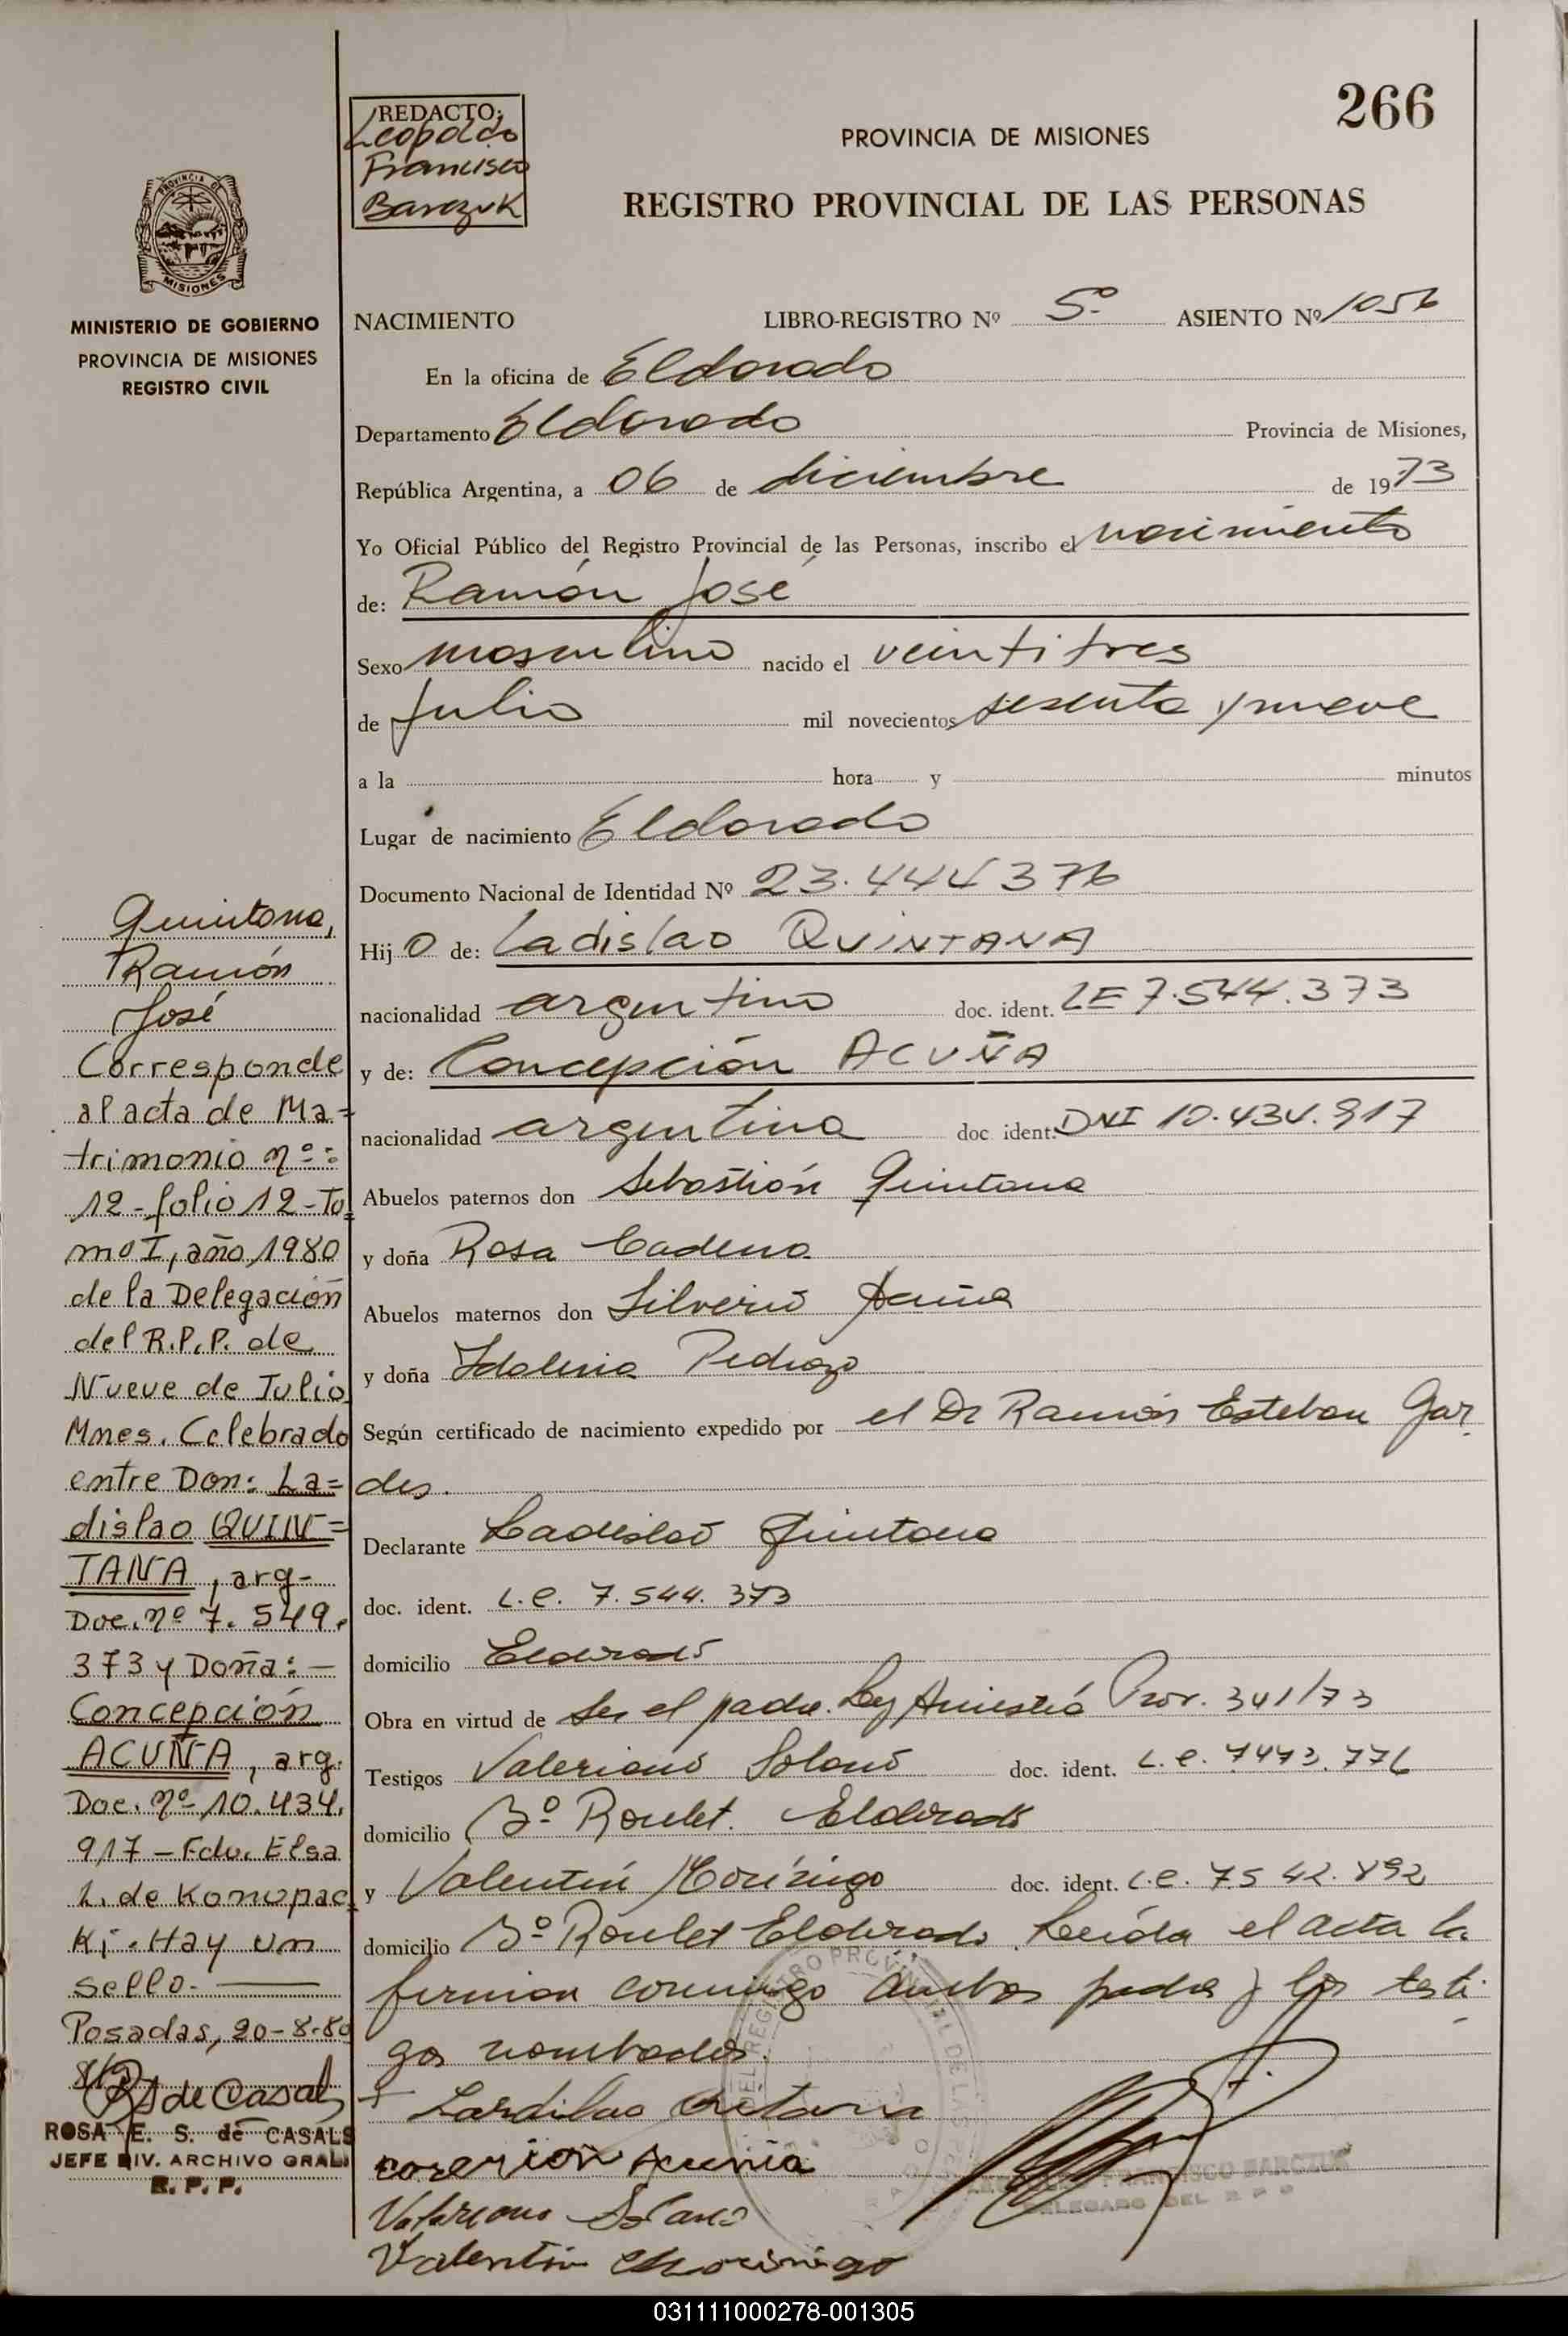 266
REDACTO:
Leopoldo
Francisco
Barczuk
PROVINCIA DE MISIONES
REGISTRO PROVINCIAL DE LAS PERSONAS
PROVINCIA DE
MISIONES
MINISTERIO DE GOBIERNO
PROVINCIA DE MISIONES
REGISTRO CIVIL
NACIMIENTO LIBRO-REGISTRO Nº 5º ASIENTO Nº 1056
En la oficina de Eldorado
Departamento Eldorado Provincia de Misiones,
República Argentina, a 06 de diciembre de 1973
Yo Oficial Público del Registro Provincial de las Personas, inscribo el nacimiento
de: Ramón José
Sexo masculino nacido el veintitres
de Julio mil novecientos sesenta y nueve
a la hora y minutos
Lugar de nacimiento Eldorado
Documento Nacional de Identidad Nº 23.444376
Hijo de: Ladislao QUINTANA
nacionalidad argentino doc. ident. LE 7.544.373
y de: Concepción ACUÑA
nacionalidad argentina doc ident. DNI 10.434.917
Abuelos paternos don Sebastián Quintana
y doña Rosa Cadena
Abuelos maternos don Silverio Acuña
y doña Idalina Pedrozo
Según certificado de nacimiento expedido por el Dr Ramón Esteban Gar
des.
Declarante Ladislao Quintana
doc. ident. L.e. 7.544.373
domicilio Eldorado
Obra en virtud de ser el padre. Ley Amnistía Prov. 341/73
Testigos Valeriano Solano doc. ident. L.e. 7473.776
domicilio Bº Roulet. Eldorado
y Valentín Morínigo doc. ident. L.e. 7542.892
domicilio Bº Roulet Eldorado. Leída el acta la
firman conmigo ambos padres y los testi-
gos nombados.
Lardilao
Acunia
Valereano Solano
Valentin Morinigo
Quintana,
Ramón
José
Corresponde
al acta de Ma=
trimonio nº:
12-folio 12-To=
mo I, año 1980
de la Delegación
del R.P.P. de
Nueve de Julio
Mnes. Celebrado
entre Don: La=
dislao QUIN=
TANA, arg-
Doc. nº 7. 549.
373 y Doña: —
Concepción
ACUÑA, arg.
Doc. nº 10.434.
917 - Fdo. Elsa
L. de Konopac
Ki. Hay un
sello.
Posadas, 20-8-80
RS de Casals
ROSA E. S. de CASALS
JEFE DIV. ARCHIVO GRAL.
R. P. P.
FRANCISCO BARCZUK
DELEGADO DEL R P P
031111000278-001305